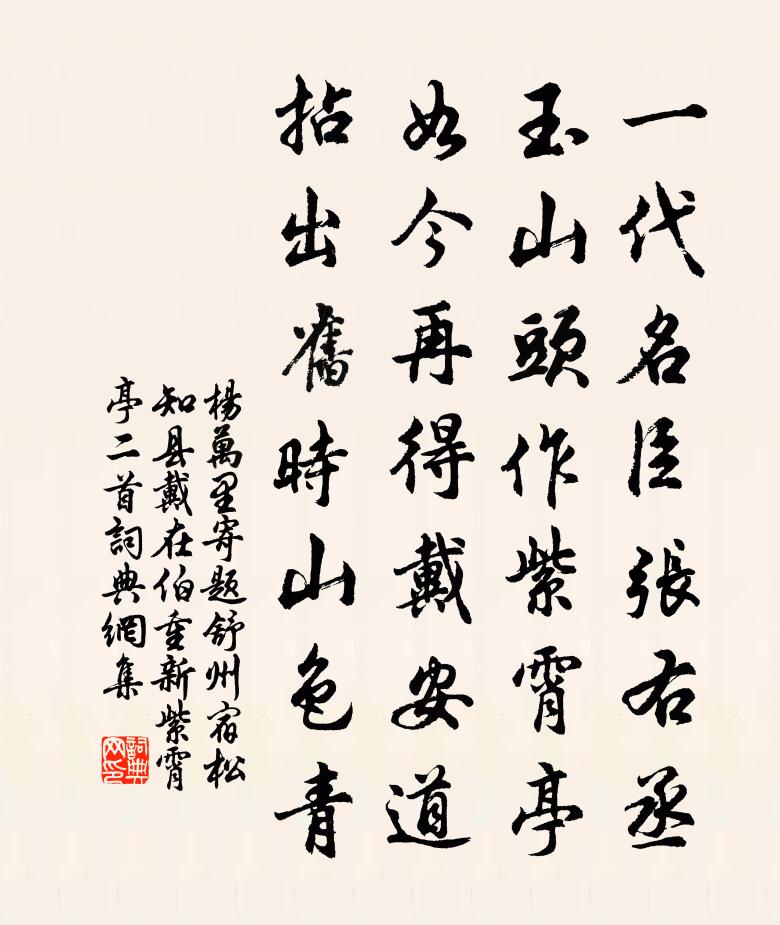 一代名臣張右丞
玉山頭作紫霄亭
如今再得戴安道
拈出舊時山色青
楊萬里寄題舒州宿松
知县戴在伯重新紫霄
亭二首詞典網集
詞典
网印